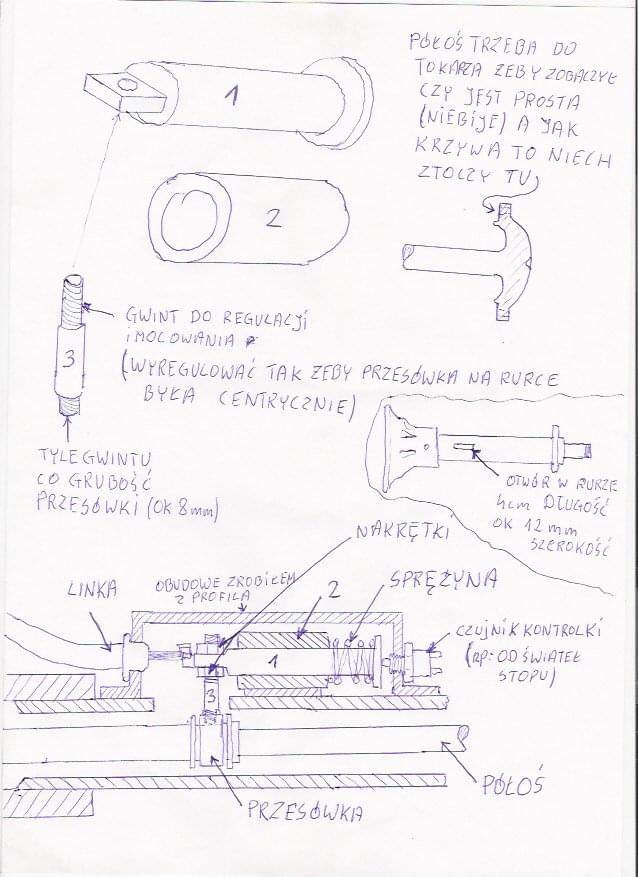 PÓŁOŚ TRZEBA DO
TOKARZA ŻEBY ZOBACZYŁ
CZY JEST PROSTA
(NIEBIJE) A JAK
KRZYWA TO NIECH
ZTOCZY TU
1
2
3
GWINT DO REGULACJI
i MOCOWANIA
(WYREGULOWAĆ TAK ŻEBY PRZESÓWKA NA RURCE
BYŁA CENTRYCZNIE)
TYLE GWINTU
CO GRUBOŚĆ
PRZESÓWKI (OK 8mm)
OTWÓR W RURZE
4cm DŁUGOŚĆ
OK 12 mm
SZEROKOŚĆ
NAKRĘTKI
LINKA
OBUDOWE ZROBIŁEM
Z PROFILA
2
SPRĘŻYNA
CZUJNIK KONTROLKI
(np: OD ŚWIATEŁ
STOPU)
1
3
PÓŁOŚ
PRZESÓWKA